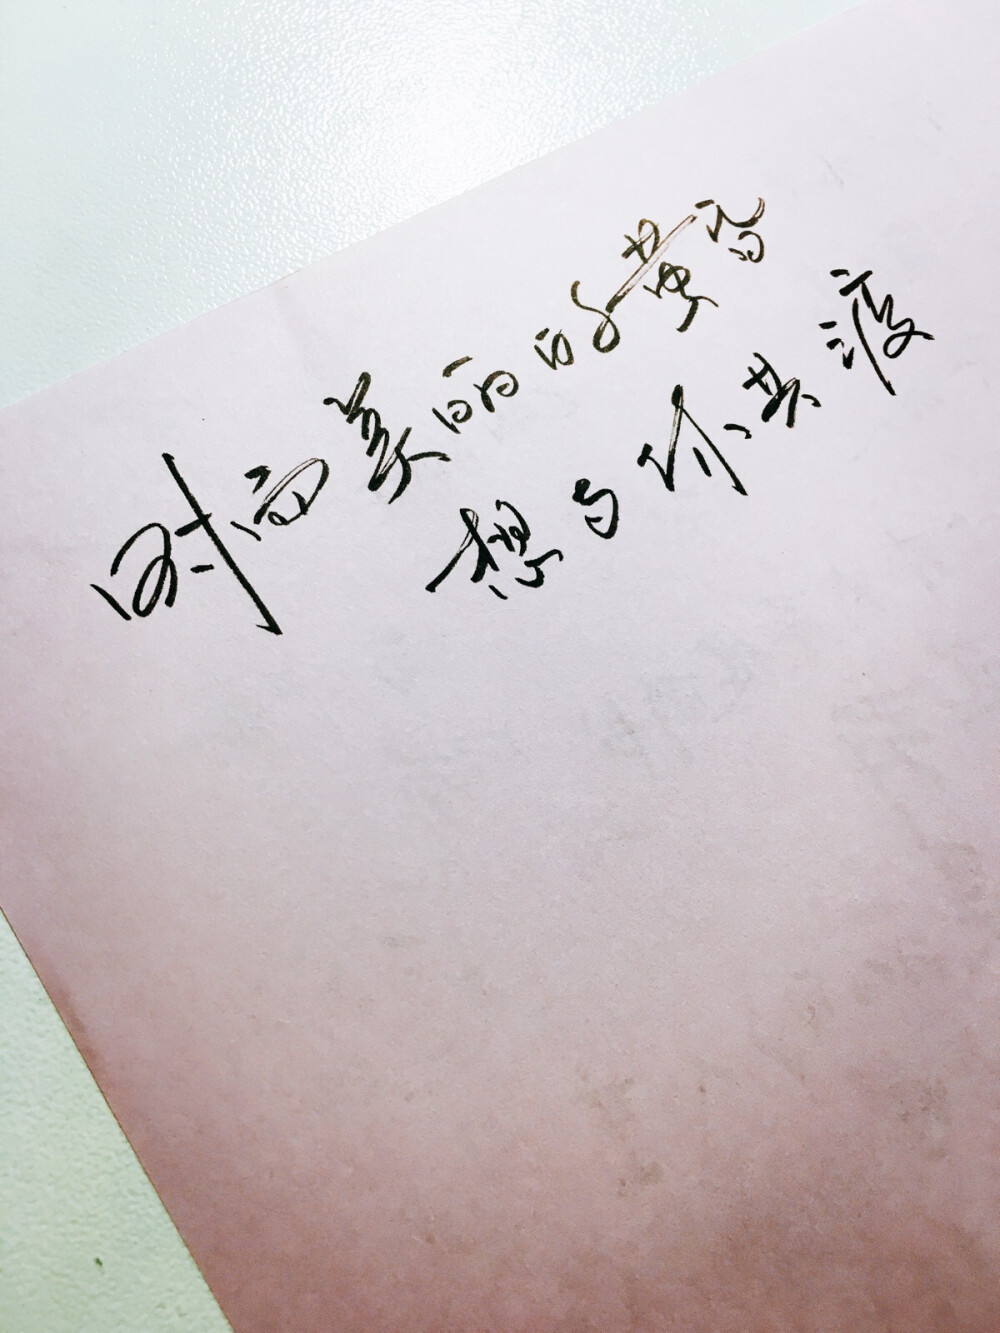 时而美丽的黄昏
想与你共渡